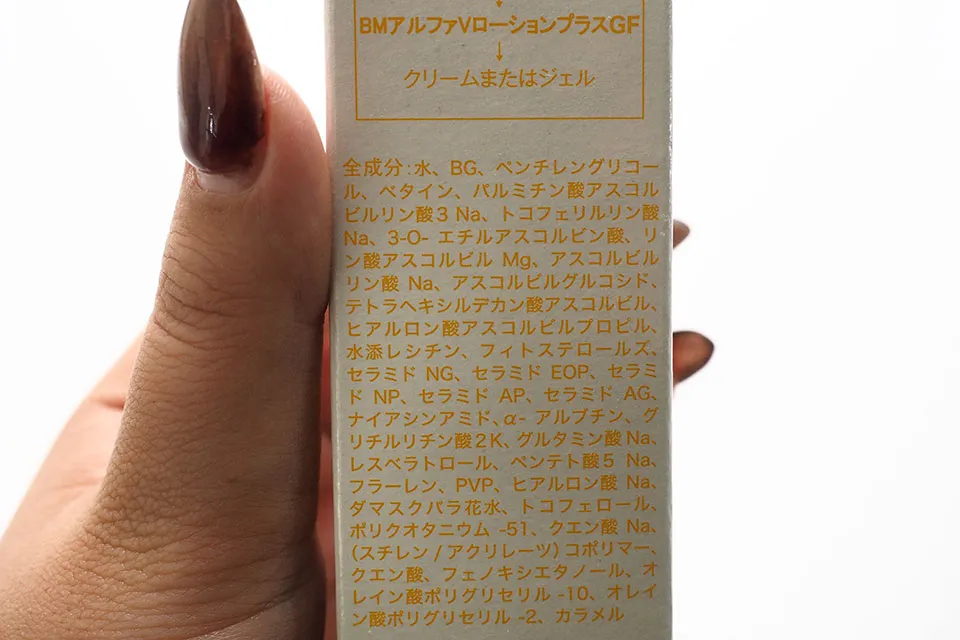 BMアルファVローションプラスGF
↓
クリームまたはジェル
全成分:水、BG、ペンチレングリコー
ル、ベタイン、パルミチン酸アスコル
ビルリン酸3 Na、トコフェリルリン酸
Na、3-O- エチルアスコルビン酸、リ
ン酸アスコルビル Mg、アスコルビル
リン酸 Na、アスコルビルグルコシド、
テトラヘキシルデカン酸アスコルビル、
ヒアルロン酸アスコルビルプロピル、
水添レシチン、フィトステロールズ、
セラミド NG、セラミド EOP、セラミ
ド NP、セラミド AP、セラミド AG、
ナイアシンアミド、α- アルブチン、グ
リチルリチン酸2K、グルタミン酸Na、
レスベラトロール、ペンテト酸5 Na、
フラーレン、PVP、ヒアルロン酸 Na、
ダマスクバラ花水、トコフェロール、
ポリクオタニウム -51、クエン酸 Na、
(スチレン / アクリレーツ) コポリマー、
クエン酸、フェノキシエタノール、オ
レイン酸ポリグリセリル -10、オレイ
ン酸ポリグリセリル -2、カラメル